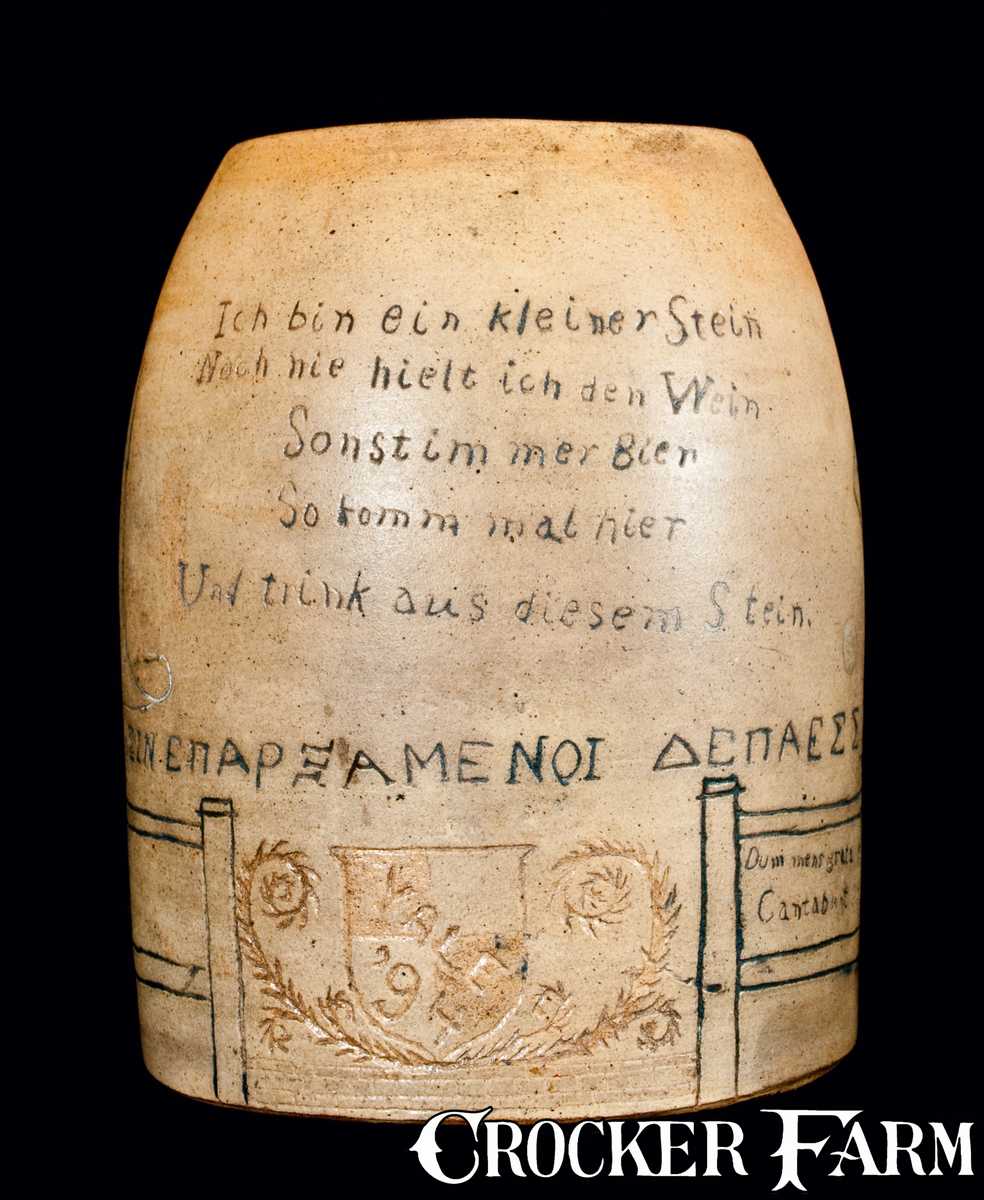 Ich bin ein kleiner Stein
Noch nie hielt ich den Wein
Sonst immer Bier
So komm mal hier
Und trink aus diesem Stein.
ΕΠΑΡΞΑΜΕΝΟΙ ΔΕΠΑΕΣΣ
Dum mens grata
Cantabit
'9
CROCKER FARM